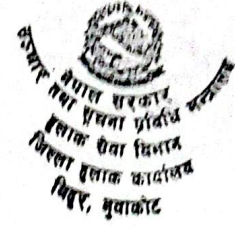 नेपाल सरकार
सञ्चार तथा सूचना प्रविधि मन्त्रालय
हुलाक सेवा विभाग
जिल्ला हुलाक कार्यालय
विदुर, नुवाकोट